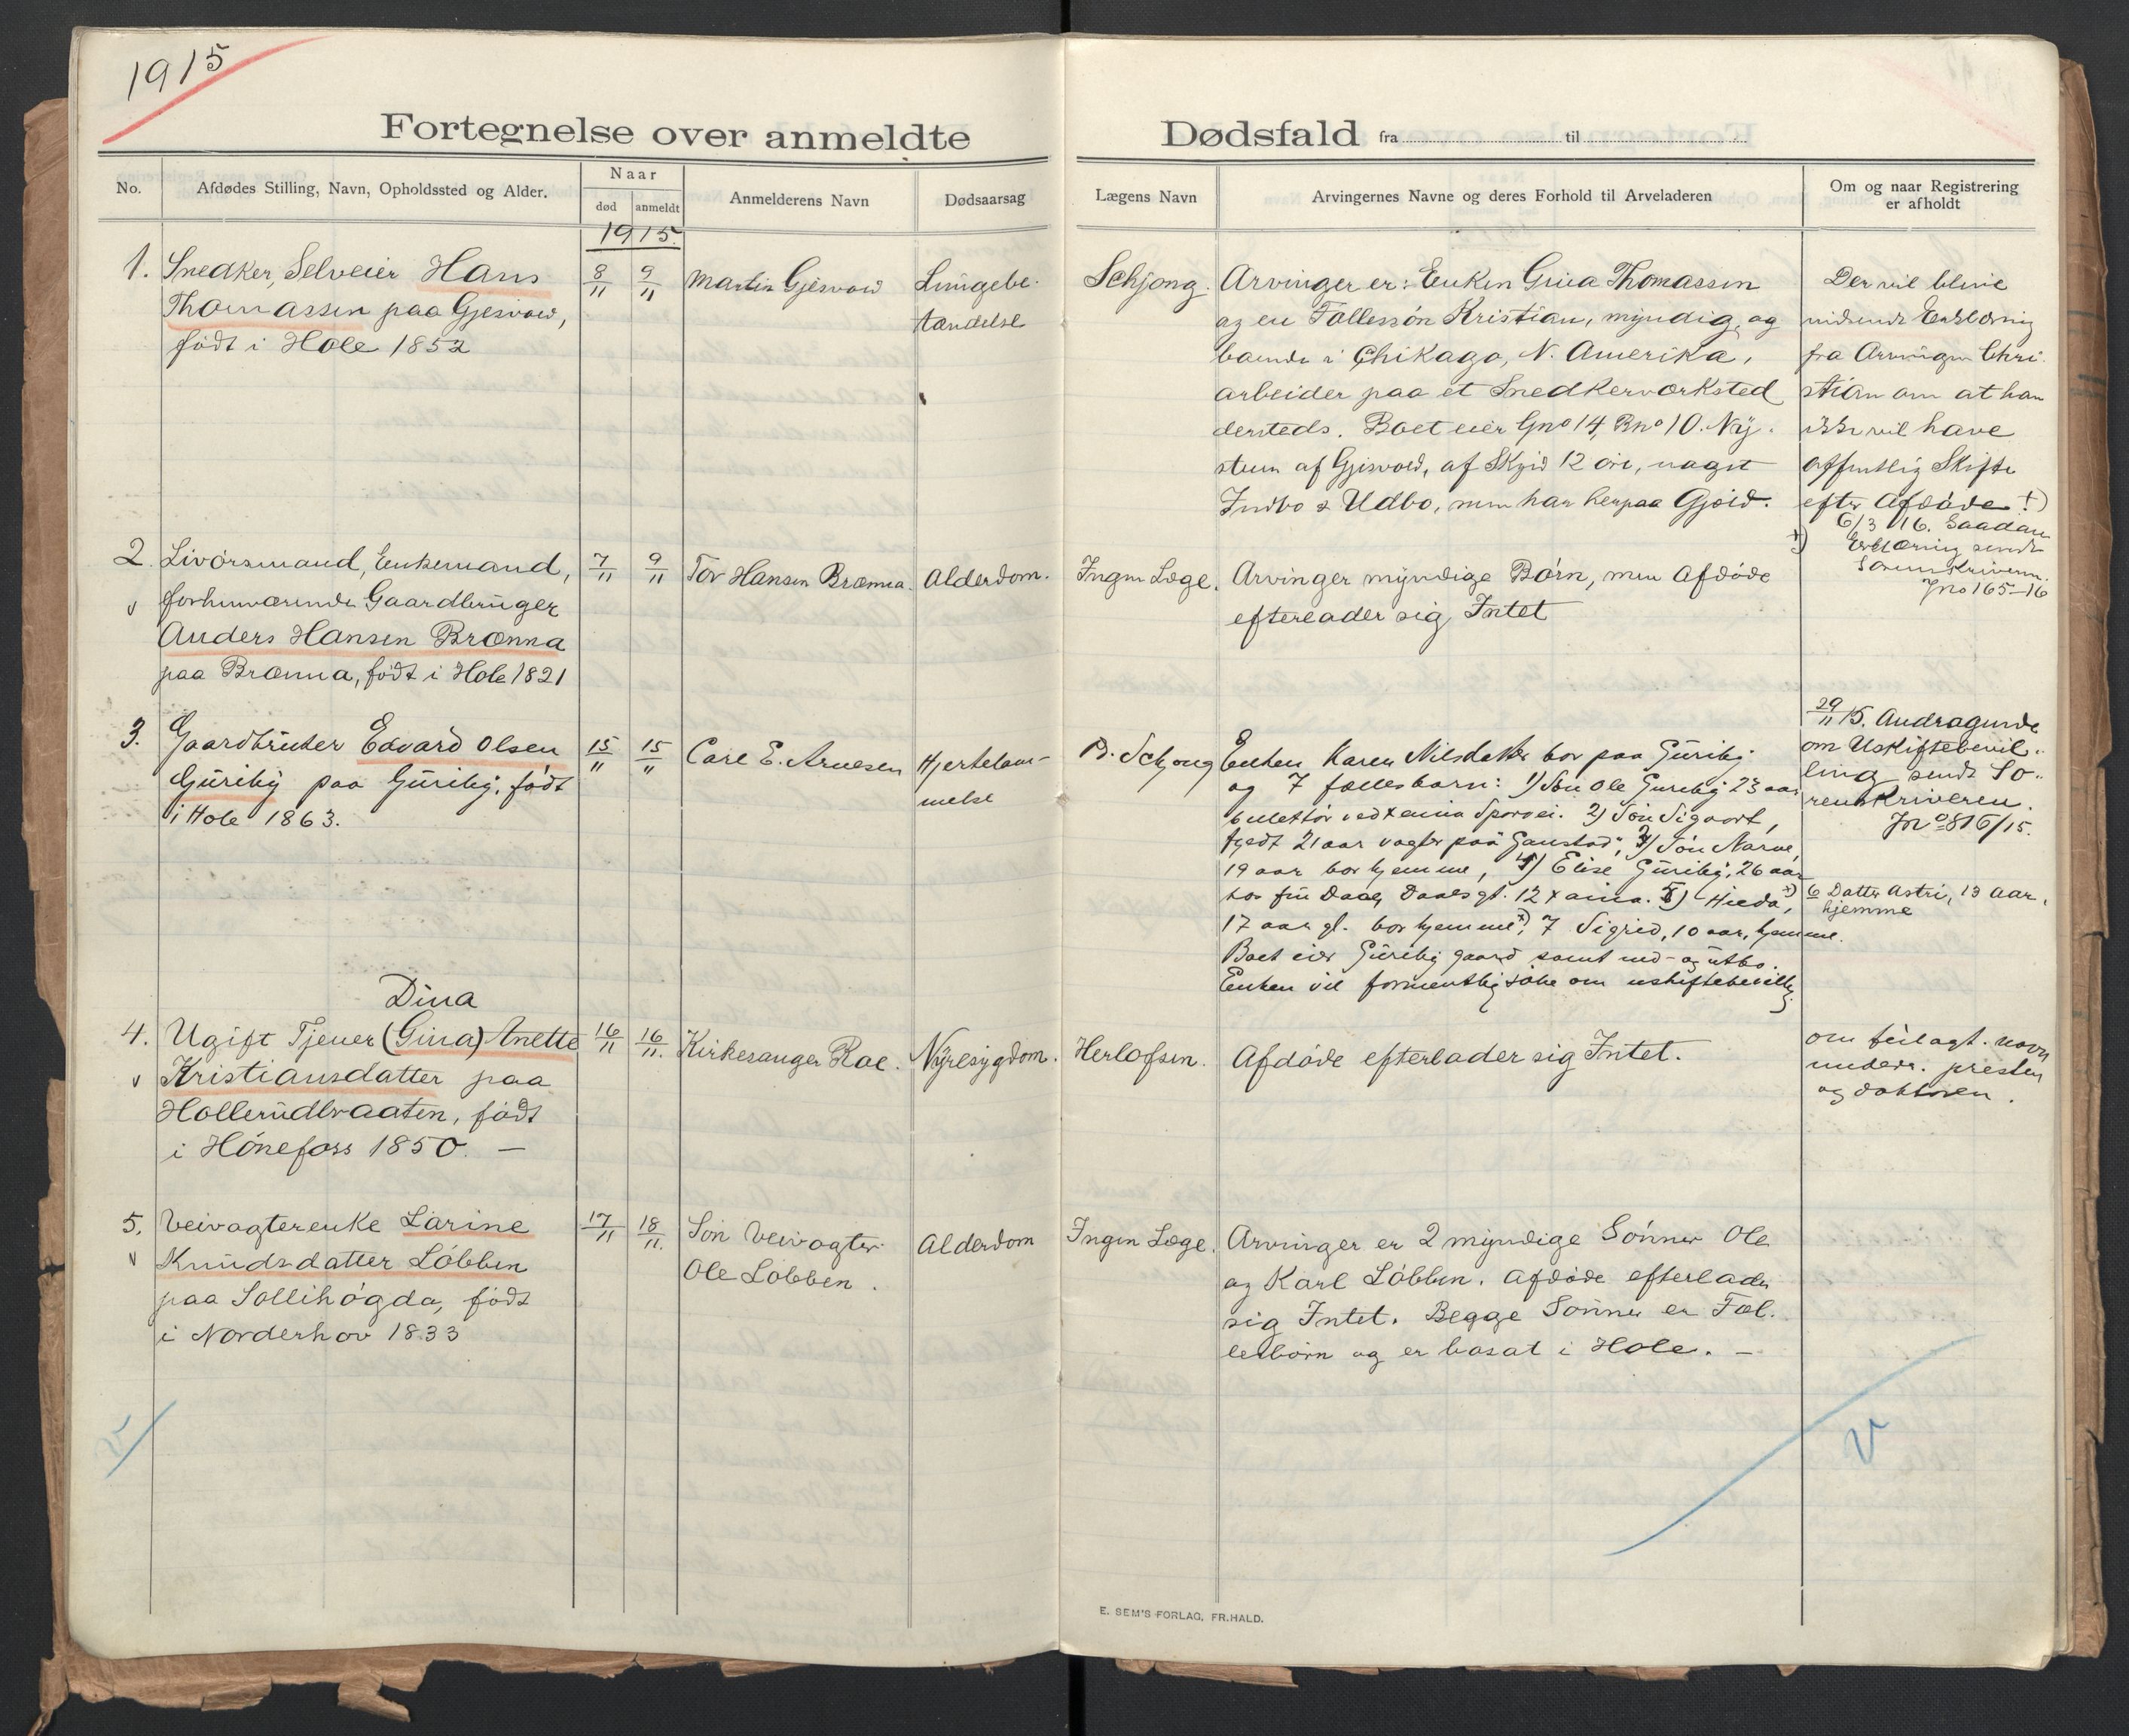 1915
Fortegnelse over anmeldte
Dødsfald fra til
No.
Afdødes Stilling, Navn, Opholdssted og Alder.
Naar
død
anmeldt
Anmelderens Navn
Dødsaarsag
Lægens Navn
Arvingernes Navne og deres Forhold til Arveladeren
Om og naar Registrering
er afholdt
1915.
1.
Snedker, Selveier Hans
Thomassen paa Gjesvold,
født i Hole 1852
8/11
9/11
Martin Gjesvold
Lungebe-
tændelse
Schjong.
Arvinger er: Enken Gina Thomassen
og en Fællessøn Kristian, myndig, og
boende i Chikago, N. Amerika,
arbeider paa et Snedkerværksted
dersteds. Boet eier Gno 14, Bno 10. Ny-
stuen af Gjesvold, af Skyld 12 øre, noget
Indbo & Udbo, men har herpaa Gjæld.
Der vil blive
indsendt Erklæring
fra Arvingen Chri-
stian om at han
ikke vil have
offentlig Skifte
efter Afdøde. +)
+) 6/3 16. Saadan
Erklæring sendt
Sorenskriveren.
Jno 165-16
2.
Livørsmand, Enkemand,
v forhenværende Gaardbruger
Anders Hansen Brænna
paa Brænna, født i Hole 1821
7/11
9/11
Tov Hansen Brænna.
Alderdom.
Ingen Læge.
Arvinger myndige Børn, men Afdøde
efterlader sig Intet
3.
Gaardbruker Edvard Olsen
Guriby paa Guriby, født
i Hole 1863.
15/11
15/11
Carl E. Arnesen
Hjertelam-
melse
D. Schjong
Enken Karen Nilsdatter bor paa Guriby.
og 7 fællesbarn: 1) Søn Ole Guriby 23 aar
ved Sporvei. 2) Søn Sigvart,
født 21 aar vogter paa Gaustad, 3) Søn Narve,
19 aar bor hjemme, 4) Elise Guriby, 26 aar
hos 5) Hilda,
17 aar gl. bor hjemme +), 7 Sigrid, 10 aar, hjemme.
Boet eier Guriby gaard samt ind- og utbo.
Enken vil formentlig søke om uskiftebevillg.
29/11 15. Andragende
om Uskiftebevil-
ling sendt So-
renskriveren.
Jno 816/15.
+) 6 Datter Astri, 13 aar,
hjemme
Dina
4.
Ugift Tjener (Gina) Anette
v Kristiansdatter paa
Hollerudbraaten, født
i Hønefoss 1850. —
16/11
16/11.
Kirkesanger Roe.
Nyresygdom.
Herlofsen.
Afdøde efterlader sig Intet.
om feilagt. navn
underr. presten
og doktoren.
5.
Veivogterenke Larine
v Knudsdatter Løbben
paa Sollihøgda, født
i Norderhov 1833
17/11
18/11.
Søn Veivogter
Ole Løbben.
Alderdom
Ingen Læge.
Arvinger er 2 myndige Sønner Ole
og Karl Løbben. Afdøde efterlader
sig Intet. Begge Sønner er Fæl-
lesbørn og er bosat i Hole. —
v
v
E. SEM'S FORLAG, FR.HALD.